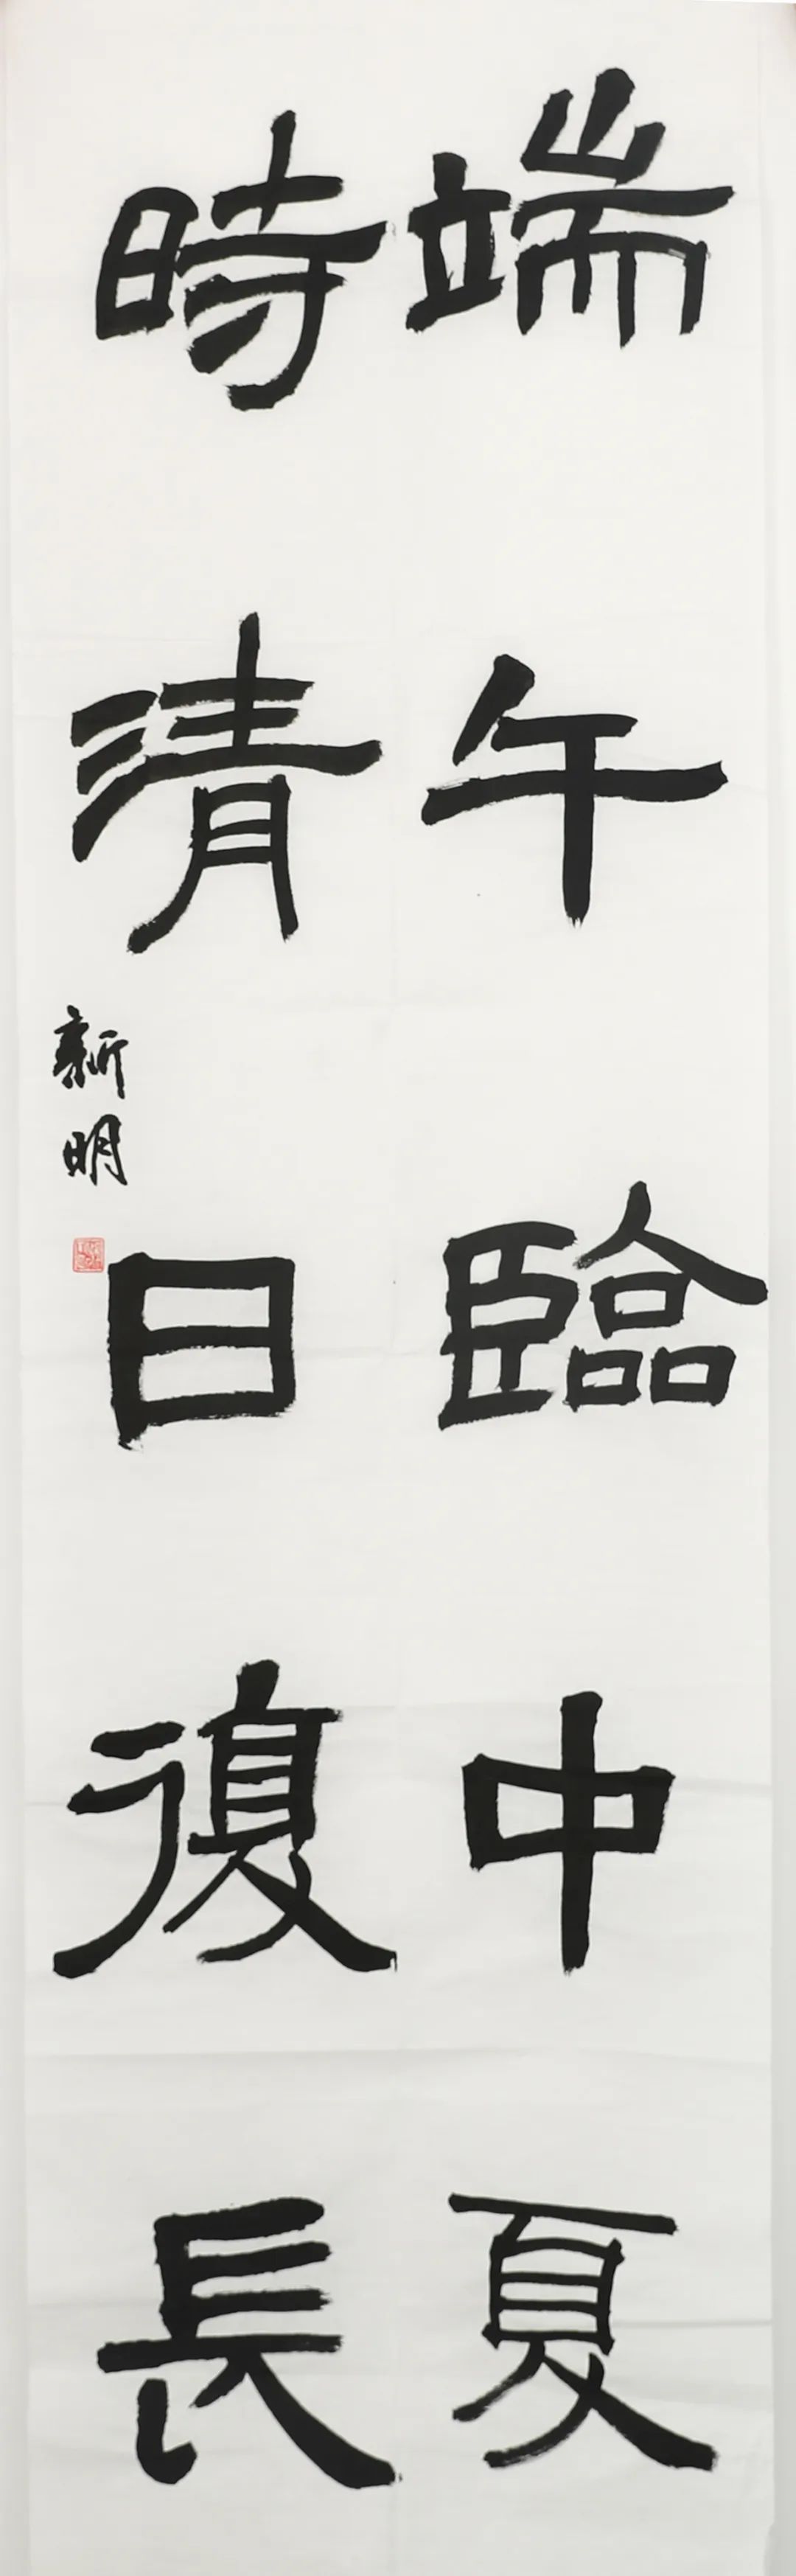 端午臨中夏
時清日復長
新明